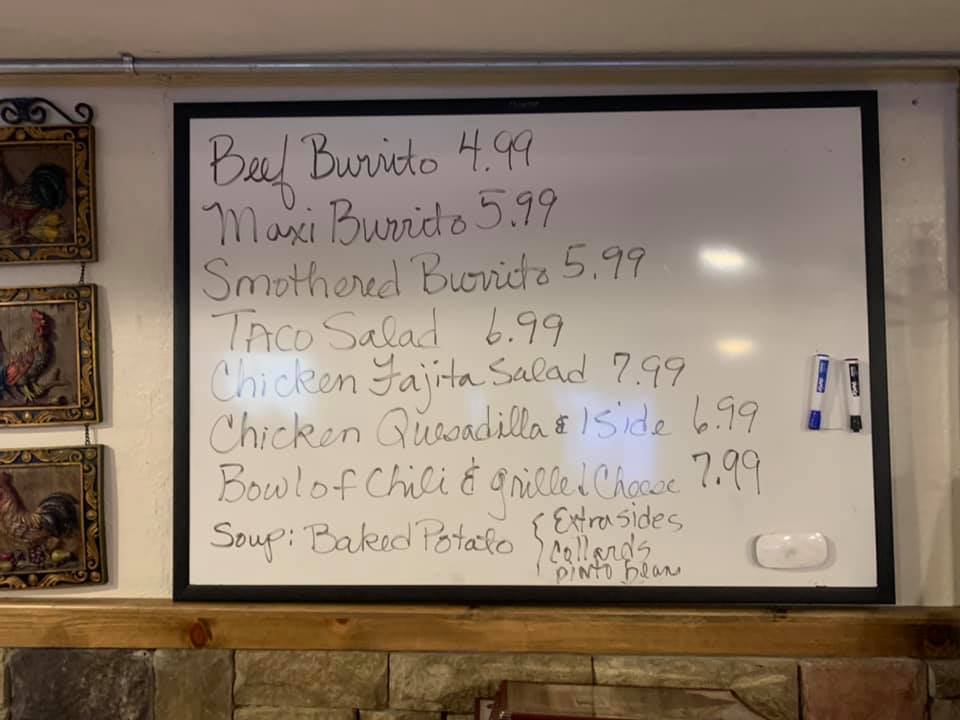 Beef Burrito 4.99
Maxi Burrito 5.99
Smothered Burrito 5.99
TACO Salad 6.99
Chicken Fajita Salad 7.99
Chicken Quesadilla & 1 side 6.99
Bowl of Chili & grilled Cheese 7.99
Soup: Baked Potato { Extra sides
Collards
pinto bean